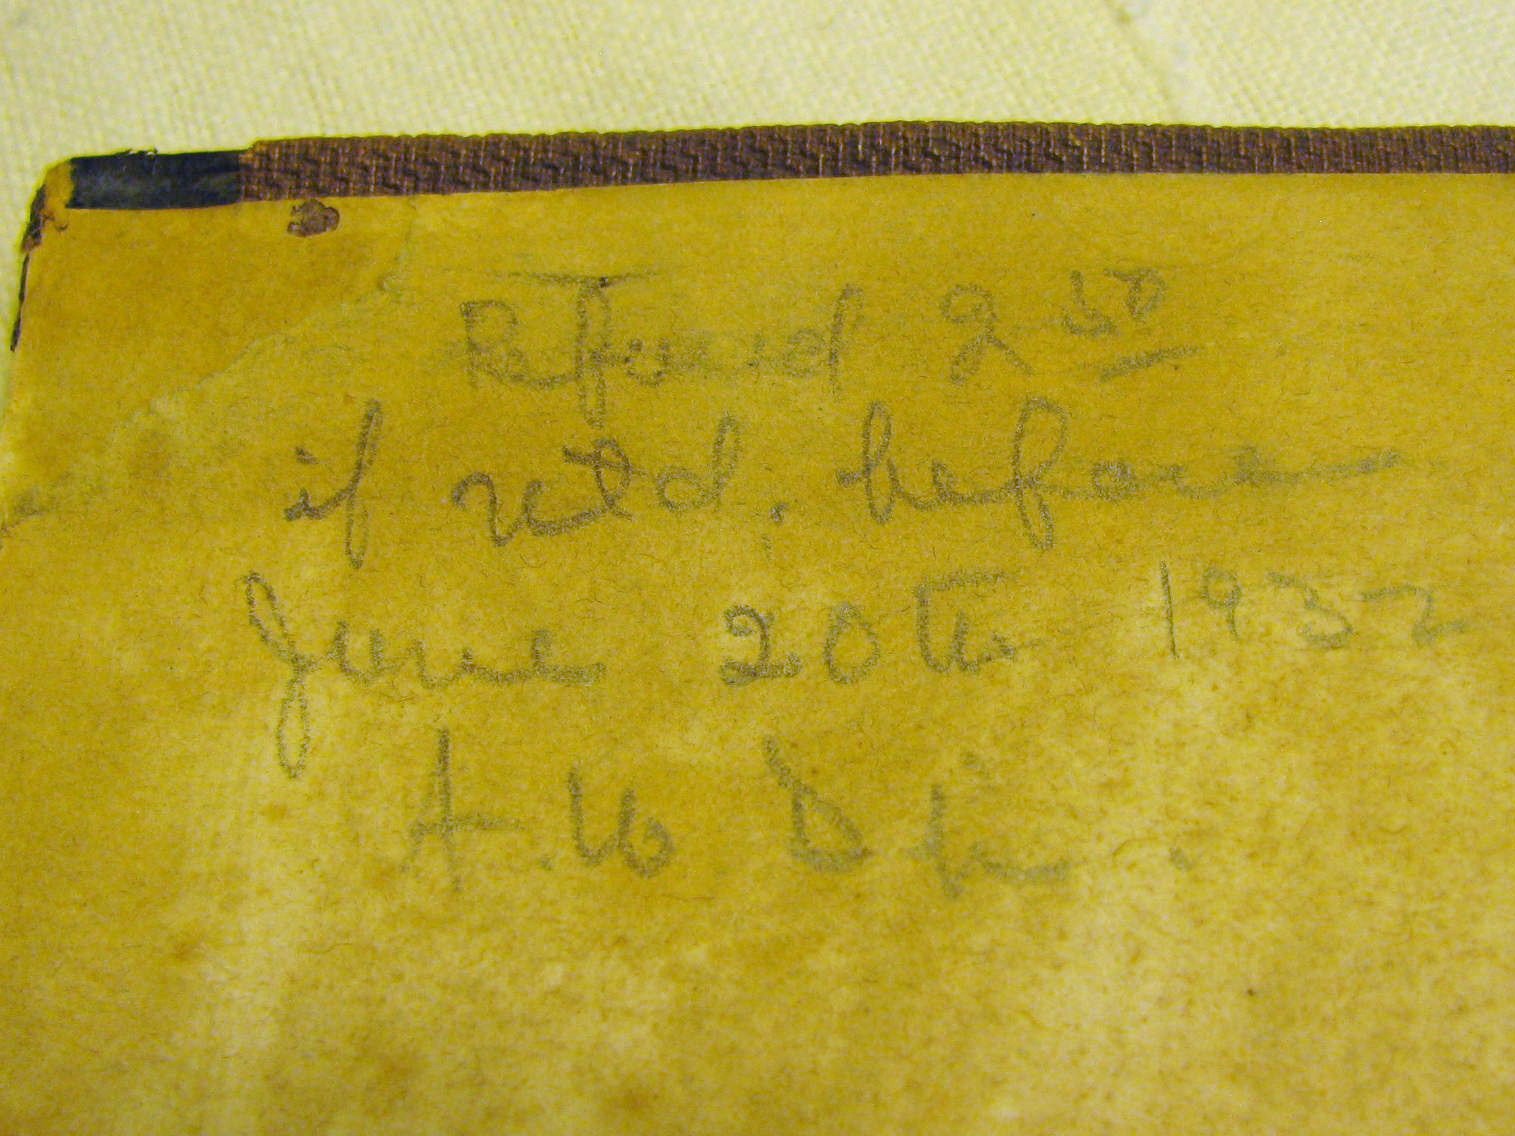 Refund 2 50
if retd. before
June 20th 1932
A.W